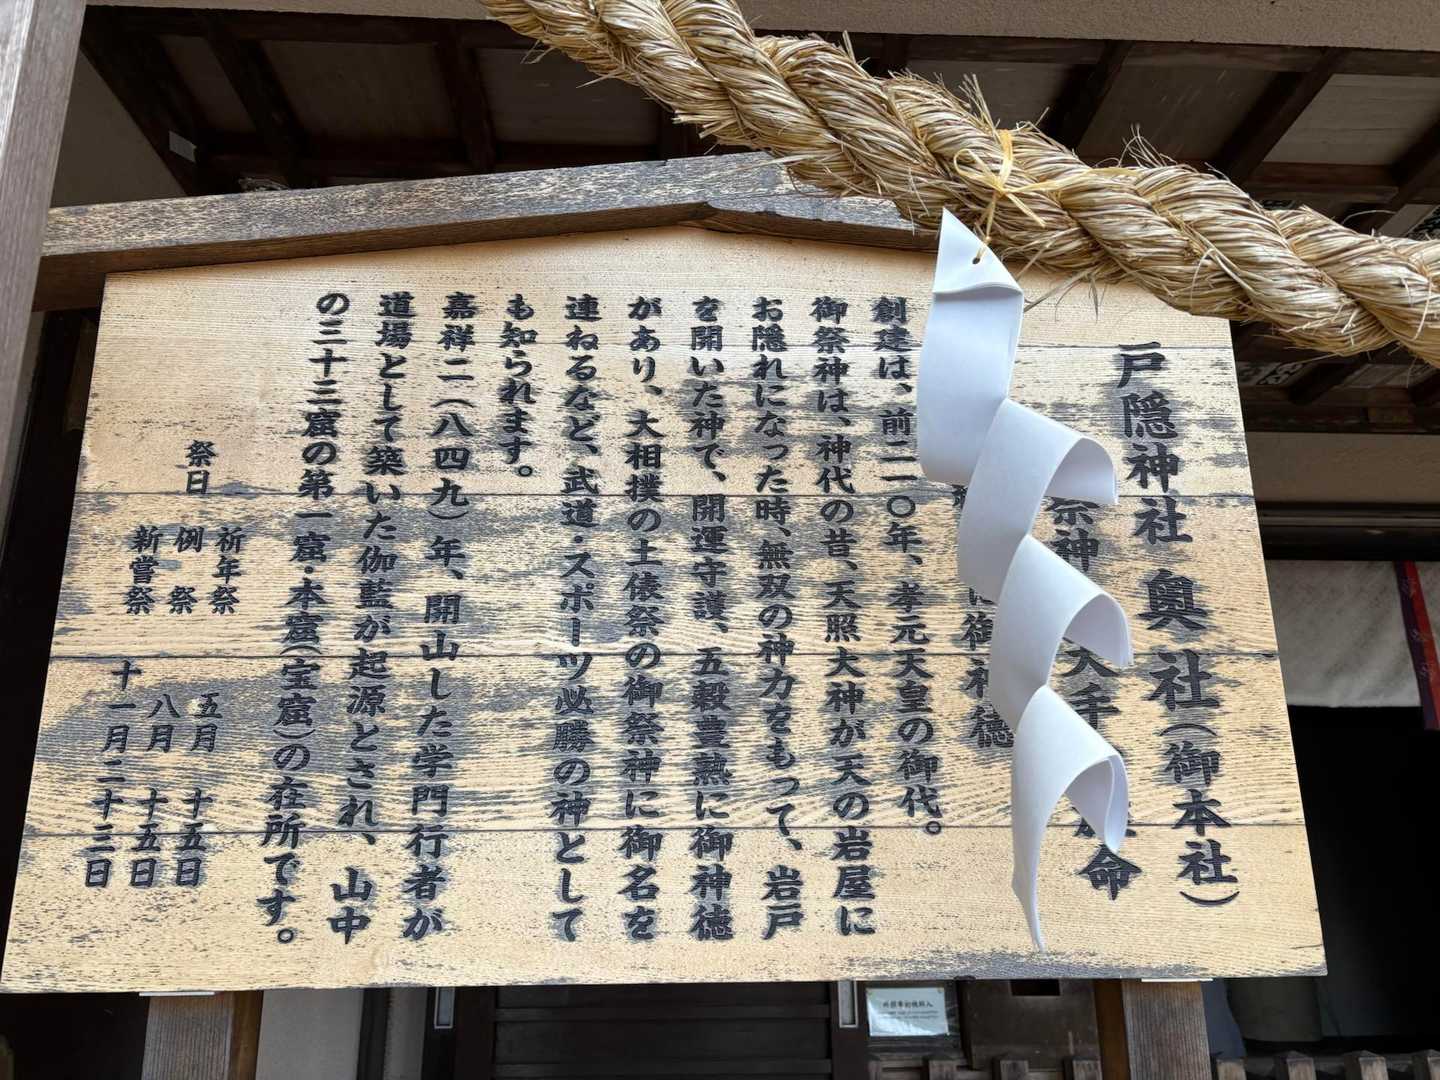 戸隠神社 奥社（御本社）
祭神 天手 命
御神徳
創建は、前二一〇年、孝元天皇の御代。
御祭神は、神代の昔、天照大神が天の岩屋に
お隠れになった時、無双の神力をもって、岩戸
を開いた神で、開運守護、五穀豊熟に御神徳
があり、大相撲の土俵祭の御祭神に御名を
連ねるなど、武道・スポーツ必勝の神として
も知られます。
嘉祥二（八四九）年、開山した学門行者が
道場として築いた伽藍が起源とされ、山中
の三十三窟の第一窟・本窟（宝窟）の在所です。
祭日
祈年祭 五月 十五日
例祭 八月 十五日
新嘗祭 十一月二十三日